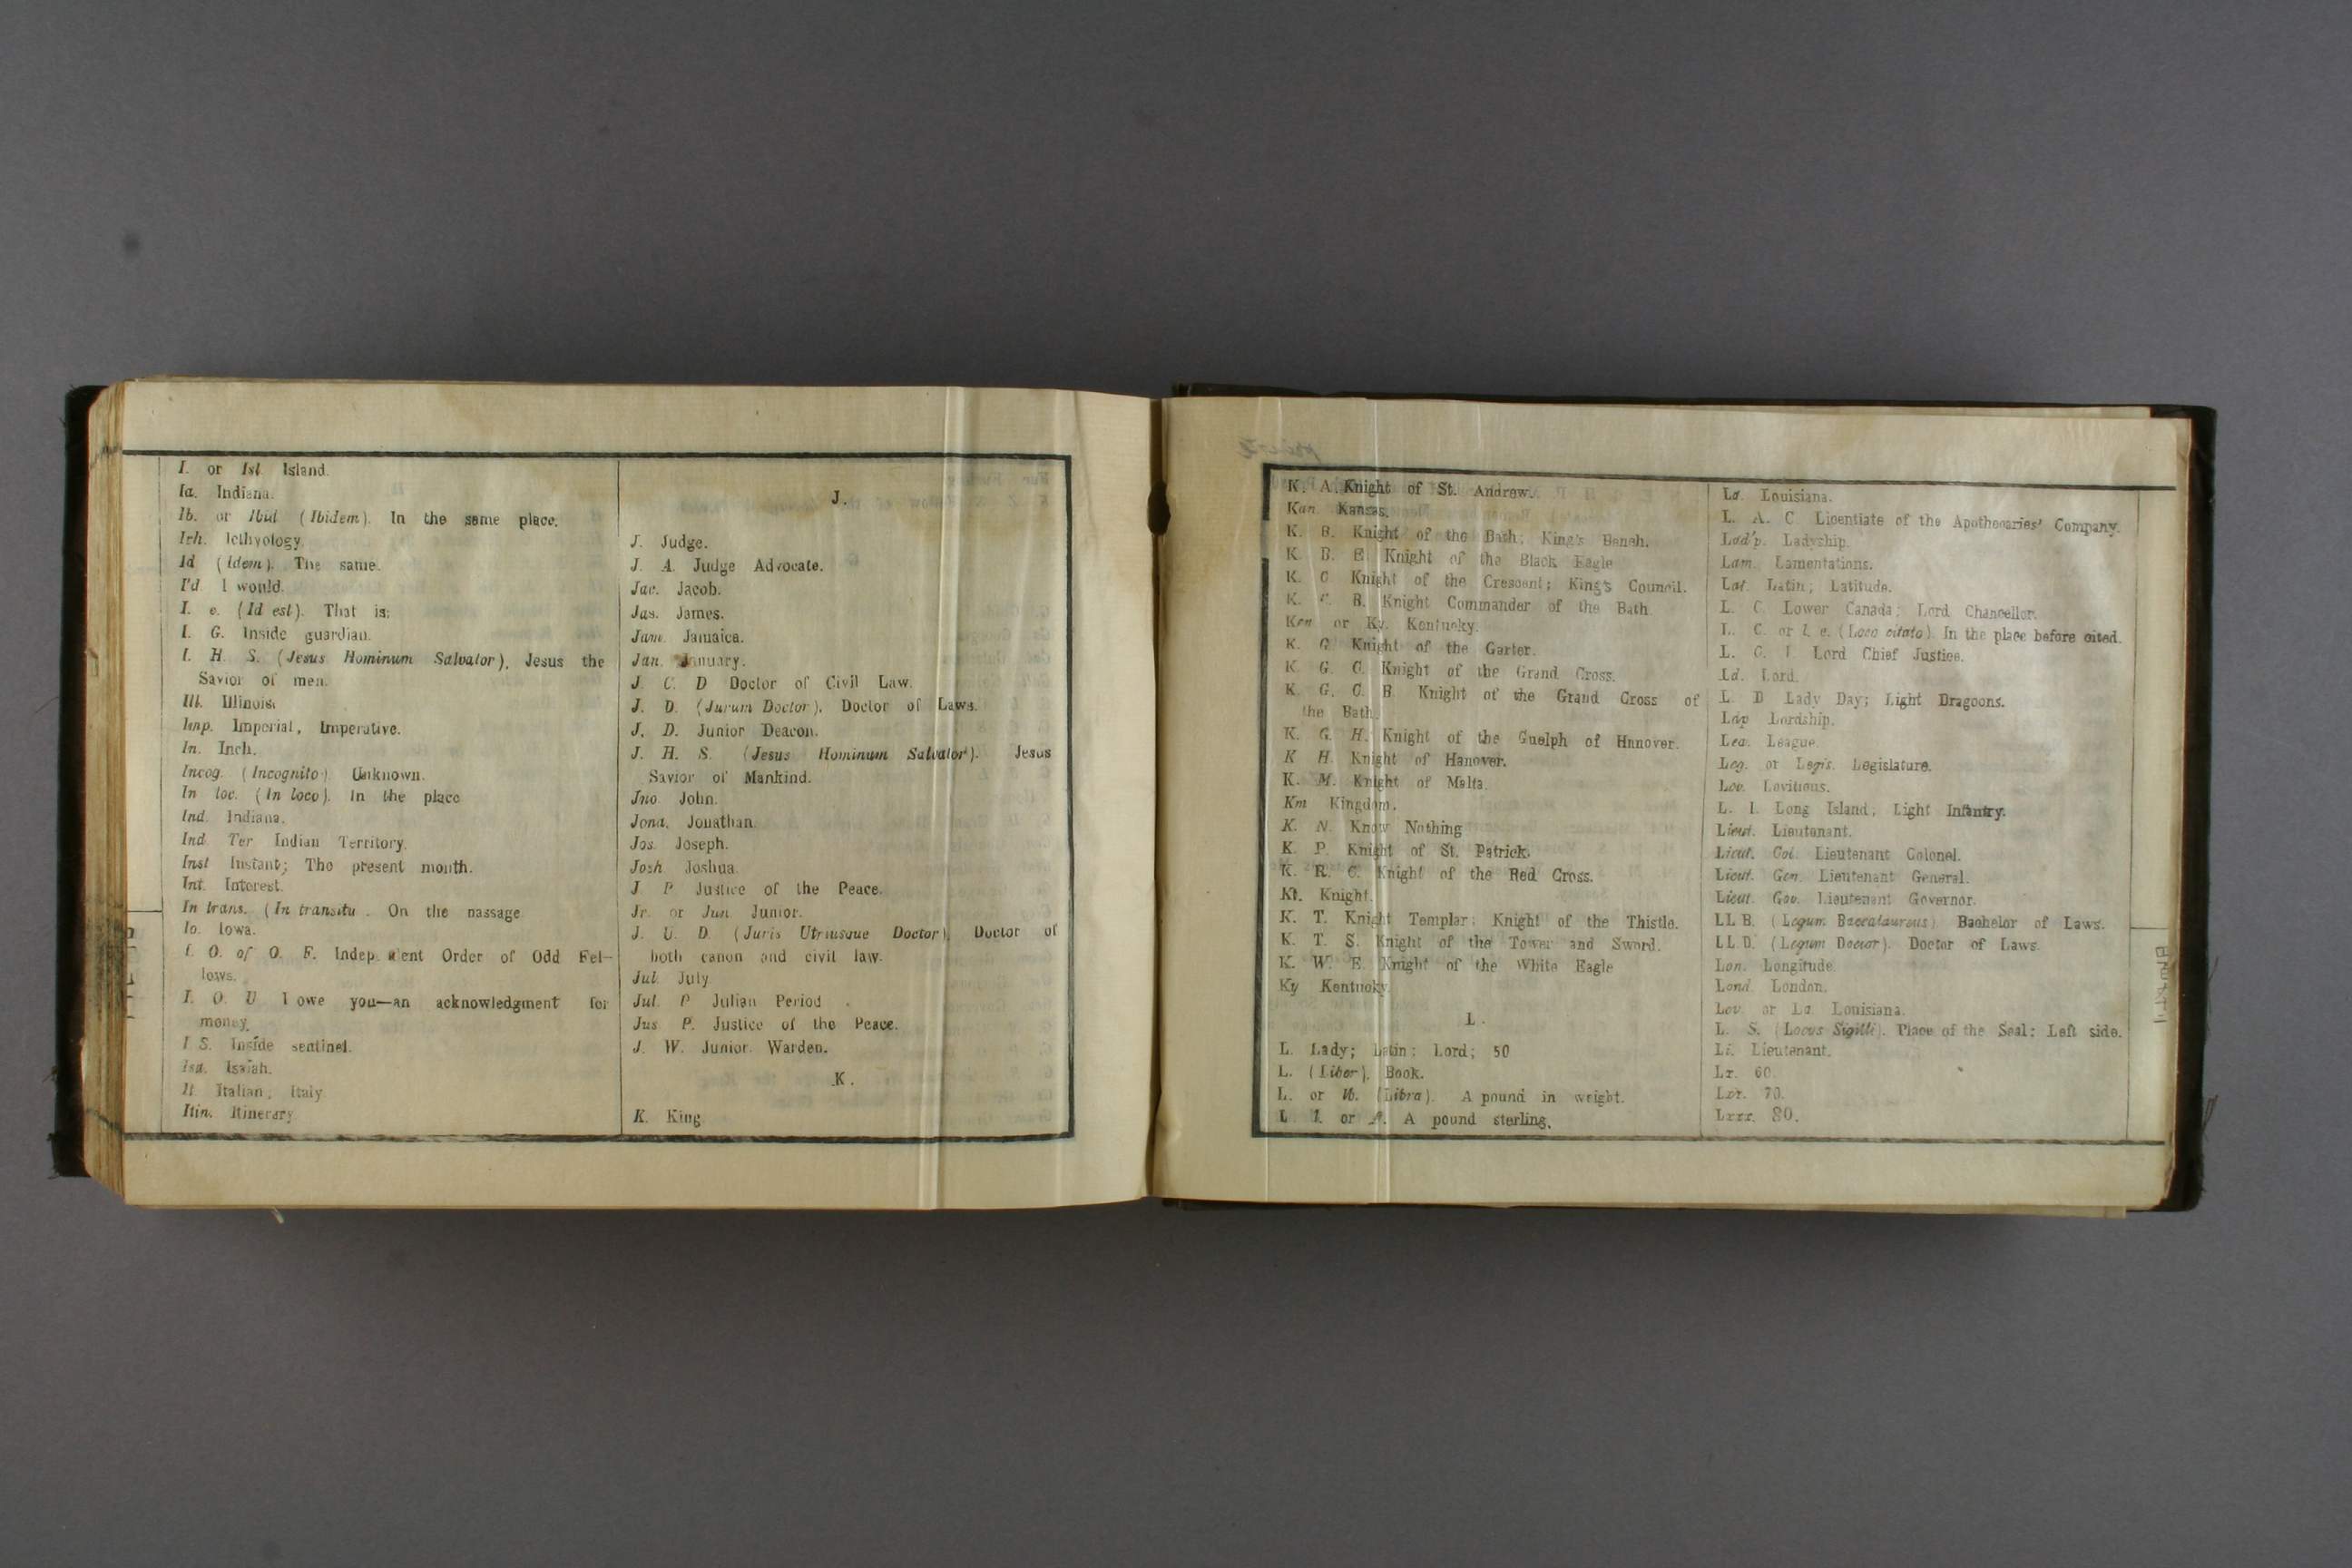 I. or Isl Island.
Ia. Indiana.
Ib. or Ibid (Ibidem). In the same place.
Ich. Icthyology.
Id (Idem). The same.
I'd I would.
I. e. (Id est). That is;
I. G. Inside guardian.
I. H. S. (Jesus Hominum Salvator), Jesus the
Savior of men.
Ill. Illinois.
Imp. Imperial, Imperative.
In. Inch.
Incog. (Incognito) Unknown.
In loc. (In loco). In the place
Ind. Indiana.
Ind Ter Indian Territory.
Inst Instant; The present month.
Int. Interest.
In trans. (In transitu . On the passage
Io. Iowa.
I. O. of O. F. Indep ent Order of Odd Fel-
lows.
I. O. U I owe you—an acknowledgment for
money.
I S. Inside sentinel.
Isa. Isaiah.
It Italian, Italy
Itin. Itinerary
J.
J. Judge.
J. A. Judge Advocate.
Jac. Jacob.
Jas. James.
Jam. Jamaica.
Jan. January.
J. C. D Doctor of Civil Law.
J. D. (Jurum Doctor). Doctor of Laws.
J. D. Junior Deacon.
J. H. S. (Jesus Hominum Salvator). Jesus
Savior of Mankind.
Jno. John.
Jona. Jonathan.
Jos. Joseph.
Josh Joshua.
J P Justice of the Peace.
Jr. or Jun Junior.
J. U. D. (Juris Utriusque Doctor), Doctor of
both canon and civil law.
Jul. July.
Jul. P Julian Period .
Jus P. Justice of the Peace.
J. W. Junior Warden.
K.
K. King
K. A. Knight of St. Andrew.
Kan Kansas.
K. B. Knight of the Bath; King's Bench.
K. B. E. Knight of the Black Eagle
K. C Knight of the Crescent; King's Council.
K. C. B. Knight Commander of the Bath
Ken or Ky. Kentucky.
K. G Knight of the Garter.
K G. C. Knight of the Grand Cross.
K. G. C. B Knight of the Grand Cross of
the Bath.
K. G. H. Knight of the Guelph of Hanover.
K H. Knight of Hanover.
K. M. Knight of Malta.
Km Kingdom.
K. N. Know Nothing
K P. Knight of St. Patrick.
K. R. C. Knight of the Red Cross.
Kt. Knight.
K. T. Knight Templar; Knight of the Thistle.
K. T. S. Knight of the Tower and Sword.
K. W. E. Knight of the White Eagle
Ky Kentucky.
L.
L. Lady; Latin; Lord; 50
L. (Liber). Book.
L. or lb. (Libra). A pound in weight.
L l. or £. A pound sterling.
La Louisiana.
L. A. C Licentiate of the Apothecaries' Company.
Lad'p. Ladyship.
Lam. Lamentations.
Lat. Latin; Latitude.
L. C. Lower Canada; Lord Chancellor.
L. C. or l. c. (Loco citato). In the place before cited.
L. C. J. Lord Chief Justice.
Ld. Lord.
L D Lady Day; Light Dragoons.
Ldp Lordship.
Lea. League.
Leg. or Legis. Legislature.
Lev. Leviticus.
L. I. Long Island; Light Infantry.
Lieut. Lieutenant.
Lieut. Col. Lieutenant Colonel.
Lieut. Gen. Lieutenant General.
Lieut Gov. Lieutenant Governor.
LL B. (Legum Baccalaureus) Bachelor of Laws.
LL D. (Legum Doctor). Doctor of Laws.
Lon. Longitude.
Lond. London.
Lou or La Louisiana.
L. S. (Locus Sigilli). Place of the Seal; Left side.
Lt. Lieutenant.
Lx. 60.
Lxx. 70.
Lxxx. 80.